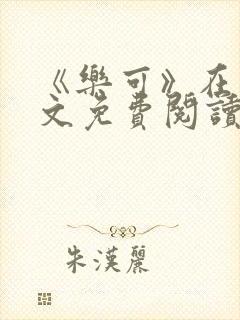 《樂可》在
文免費閱讀
朱漢麗